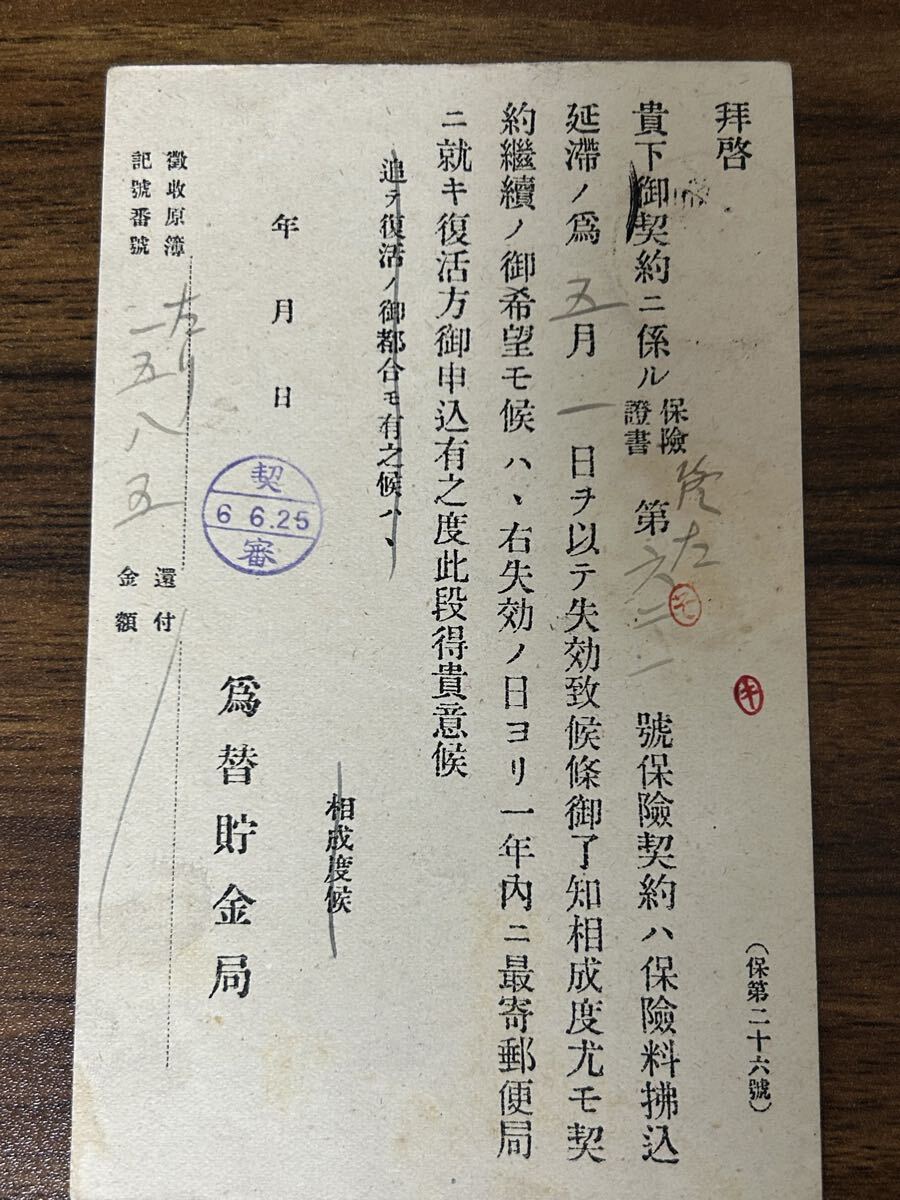 (保第二十六號)
拜啓
貴下御契約ニ係ル保險證書第六二一號保險契約ハ保險料拂込
延滯ノ爲五月一日ヲ以テ失効致候條御了知相成度尤モ契
約繼續ノ御希望モ候ハヽ右失効ノ日ヨリ一年內ニ最寄郵便局
ニ就キ復活方御申込有之度此段得貴意候
追テ復活ノ御都合モ有之候ハヽ
相成度候
年月日
契
6 6.25
審
爲替貯金局
徵收原簿
記號番號
一五八五
還付
金額
キ